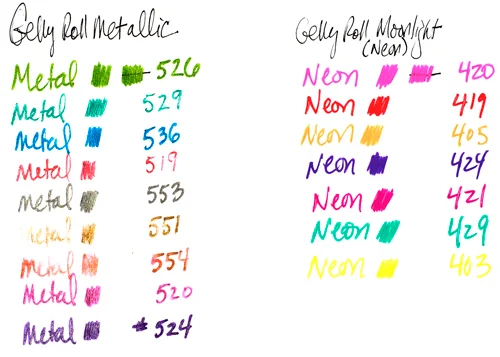 Gelly Roll Metallic
Metal 526
Metal 529
Metal 536
Metal 519
Metal 553
Metal 551
Metal 554
Metal 520
Metal # 524
Gelly Roll Moonlight
(Neon)
Neon 420
Neon 419
Neon 405
Neon 424
Neon 421
Neon 429
Neon 403